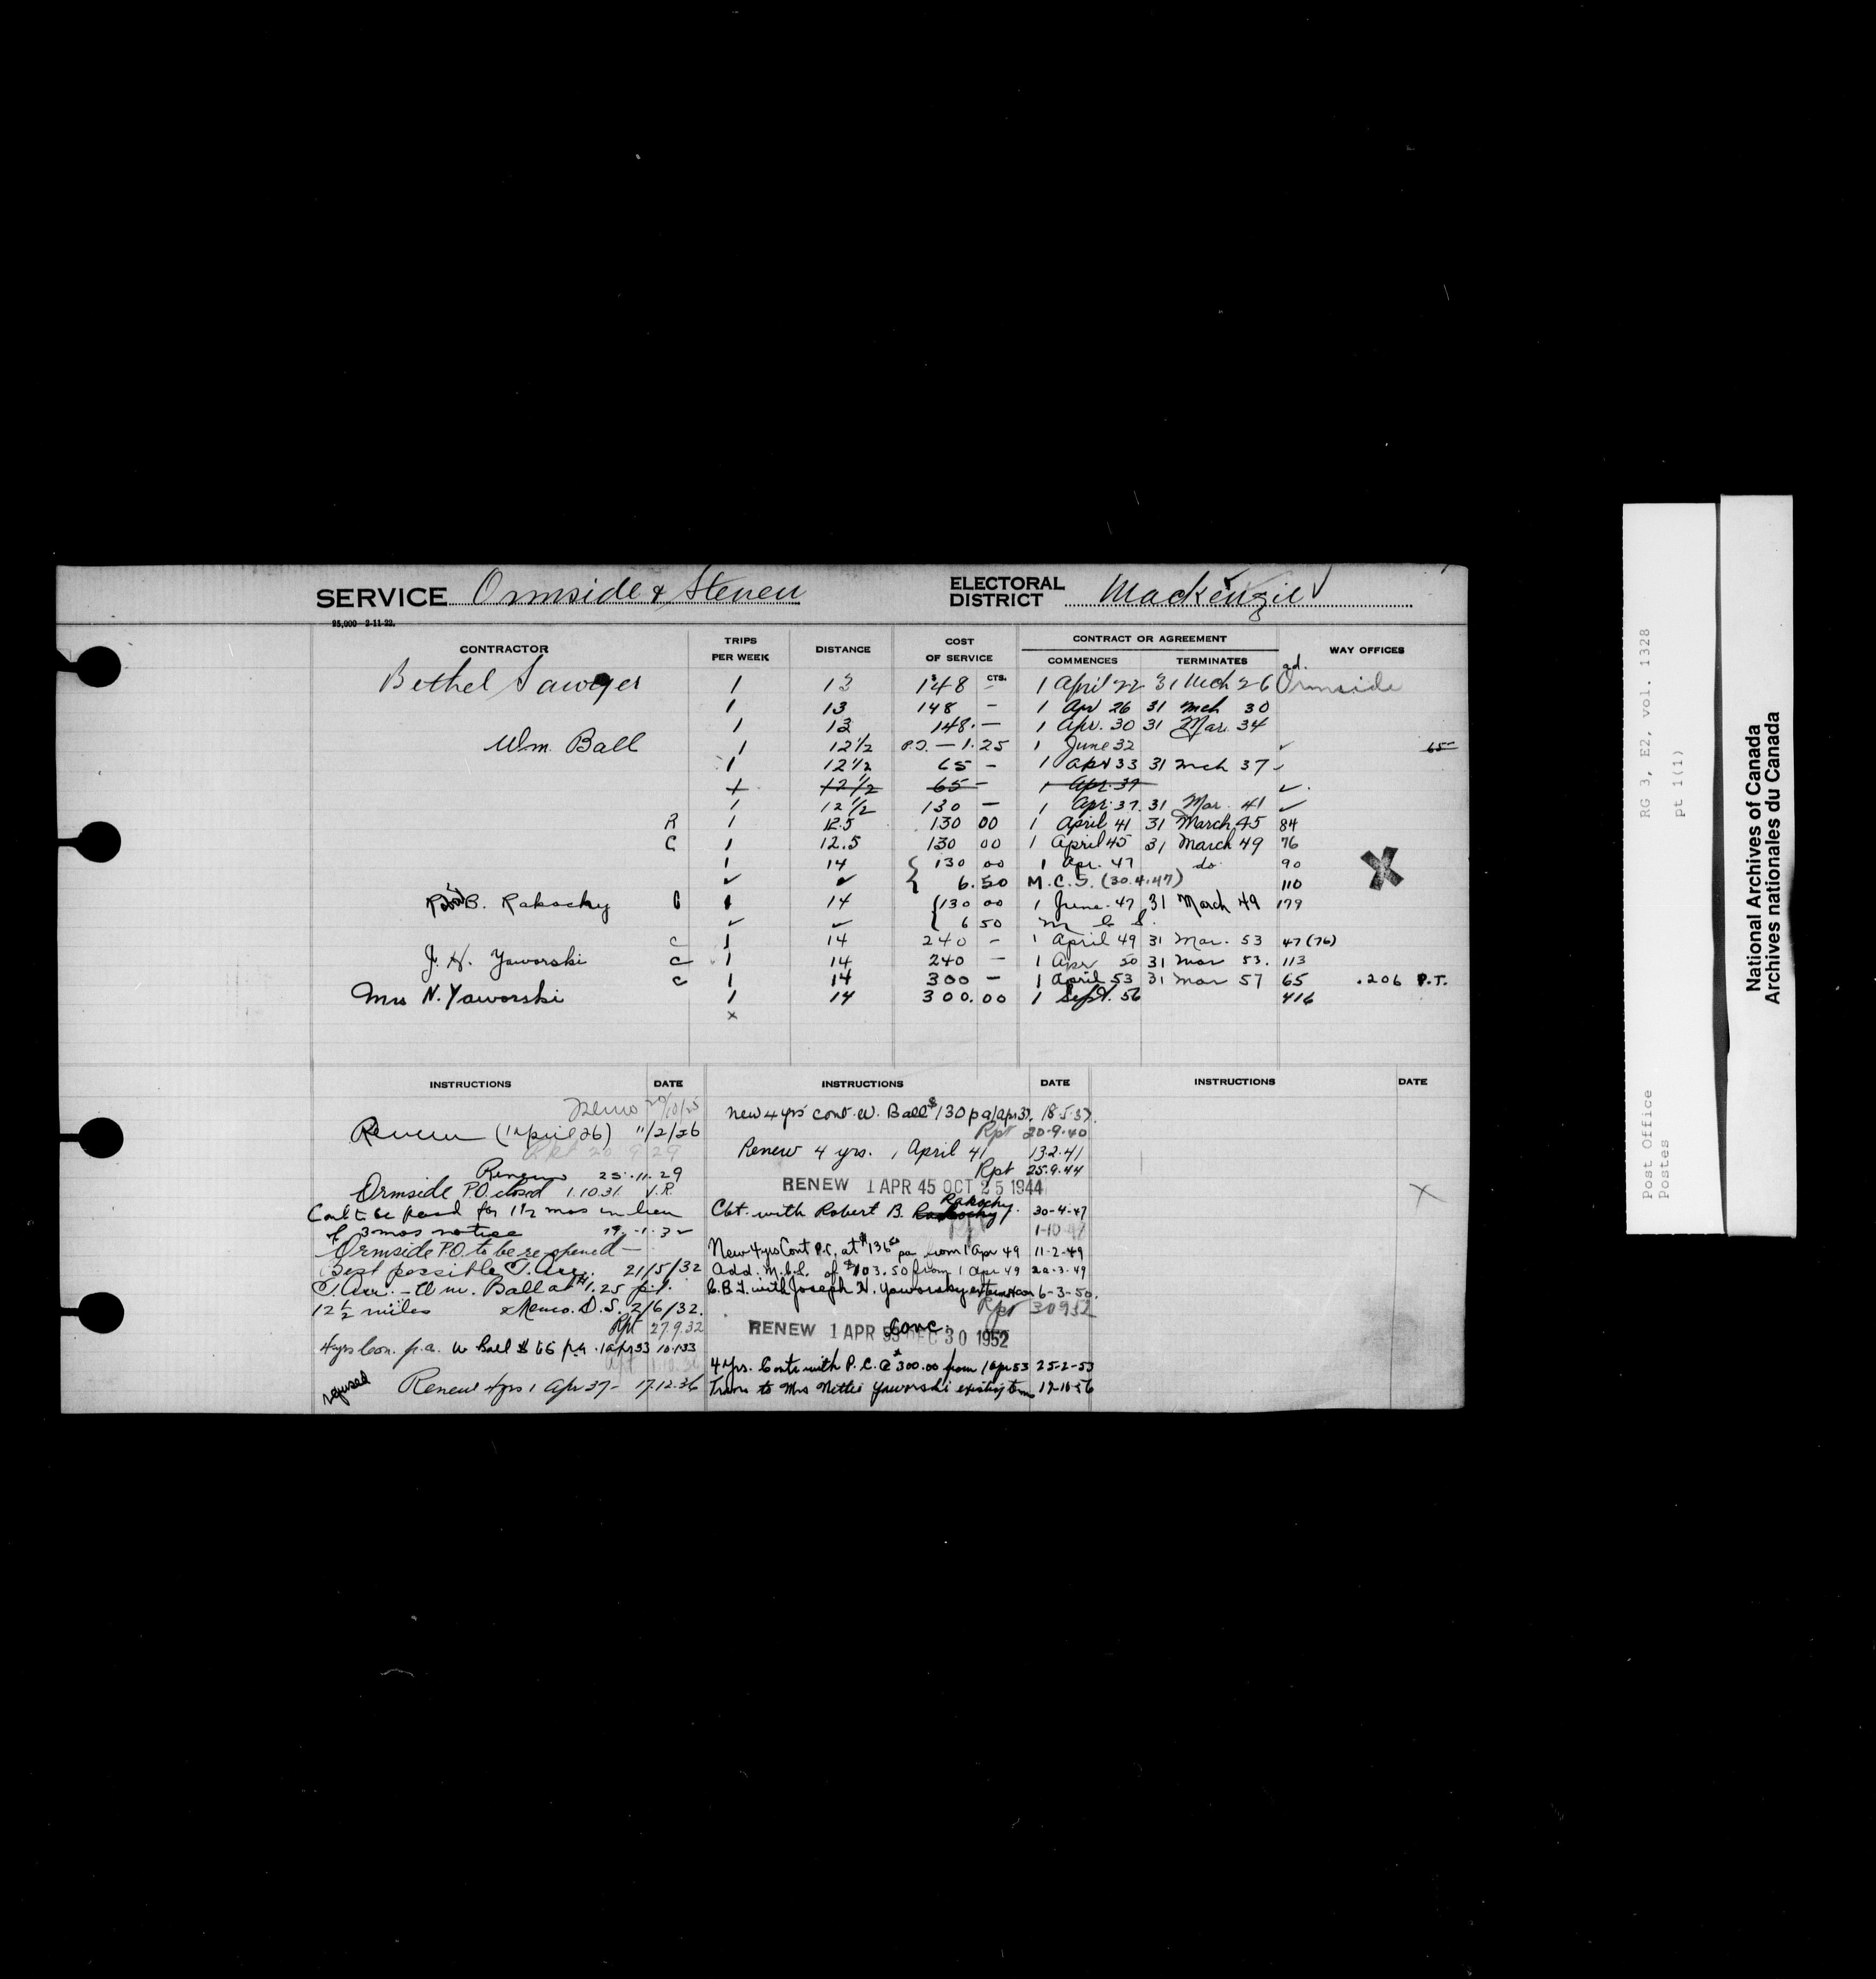 SERVICE Ormside & Stenen ELECTORAL DISTRICT Mackenzie
25,000 2-11-22.
CONTRACTOR TRIPS PER WEEK DISTANCE COST OF SERVICE CONTRACT OR AGREEMENT COMMENCES TERMINATES WAY OFFICES
Bethel Sawyer 1 13 $148 CTS. – 1 April 22 31 Mch 26 Ormside
1 13 148 – 1 Apr 26 31 Mch 30
1 13 148. – 1 Apr. 30 31 Mar. 34
Wm. Ball 1 12½ P.T. – 1.25 1 June 32 ✓ 65
1 12½ 65 – 1 Apr 33 31 Mch 37 ✓
1 12½ 65 – 1 Apr. 37 ✓
1 12½ 130 – 1 Apr. 37. 31 Mar. 41 ✓
R 1 12.5 130 00 1 April 41 31 March 45 84
C 1 12.5 130 00 1 April 45 31 March 49 76
1 14 { 130 00 1 Apr. 47 do 90
✓ ✓ { 6.50 M.C.S. (30.4.47) 110
Robt B. Rakochy C 1 14 { 130 00 1 June. 47 31 March 49 179
✓ ✓ { 6 50 M C S.
C 1 14 240 – 1 April 49 31 Mar. 53 47 (76)
J. H. Yaworski C 1 14 240 – 1 Apr 50 31 Mar 53. 113
C 1 14 300 – 1 April 53 31 Mar 57 65 .206 P.T.
Mrs N. Yaworski 1 14 300.00 1 Sept. 56 416
x
INSTRUCTIONS DATE INSTRUCTIONS DATE INSTRUCTIONS DATE
Memo 29/10/25
Renew (1 April 26) 11/2/26
Rpt 20 9 29
Renew 25.11.29
Ormside P.O. closed 1.10.31. V.R.
Cont to be paid for 1½ mos in lieu
of 3 mos notice 19.-1.32
Ormside P.O. to be reopened –
Best possible T. Arr. 21/5/32
T. Arr. – Wm. Ball at $1.25 p.t.
12½ miles Memo. D.S. 2/6/32.
Rpt 27.9.32
4 yrs Con. p.a. W Ball $65 pa. 1 Apr 33 10.1.33
refused Renew 4 yrs 1 Apr 37 – 17.12.36
New 4 yrs' cont. W. Ball $130 pa 1 Apr 37. 18.5.37.
Rpt 20-9-40
Renew 4 yrs. 1 April 41 13.2.41
Rpt 25.9.44
RENEW 1 APR 45 OCT 25 1944
Cbt. with Robert B. Rakochy. 30-4-47
1-10-47
New 4 yrs Cont P.C. at $136.50 pa from 1 Apr 49 11-2-49
Add. M.C.S. of $103.50 from 1 Apr 49 22-3-49
C.B.T. with Joseph H. Yaworsky 6-3-50.
Rpt 30 9 52
RENEW 1 APR 53 DEC 30 1952
Canc.
4 Yrs. Contr with P.C. @ $300.00 from 1 Apr 53 25-2-53
Trans to Mrs Nettie Yaworski existing terms 19-10-56
RG 3, E2, vol. 1328
pt 1(1)
Post Office
Postes
National Archives of Canada
Archives nationales du Canada